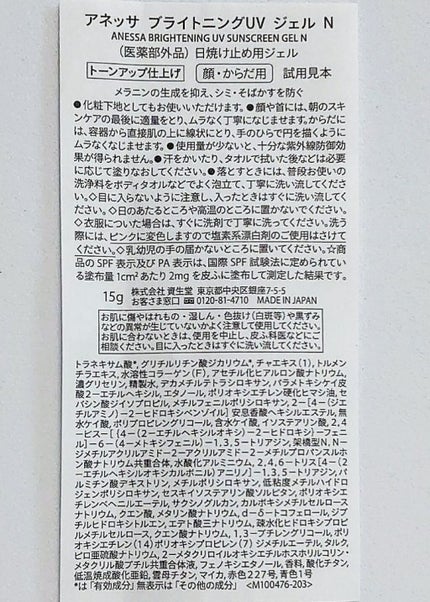 アネッサ ブライトニングUV ジェル N
ANESSA BRIGHTENING UV SUNSCREEN GEL N
（医薬部外品）日焼け止め用ジェル
トーンアップ仕上げ 顔・からだ用 試用見本
メラニンの生成を抑え、シミ・そばかすを防ぐ
●化粧下地としてもお使いいただけます。●顔や首には、朝のスキ
ンケアの最後に適量をとり、ムラなく丁寧になじませます。からだに
は、容器から直接肌の上に線状にとり、手のひらで円を描くように
ムラなくなじませます。●使用量が少ないと、十分な紫外線防御効
果が得られません。●汗をかいたり、タオルで拭いた後などは必要
に応じて塗りなおしてください。●落とすときには、普段お使いの
洗浄料をボディタオルなどでよく泡立て、丁寧に洗い流してくださ
い。◇目に入らないように注意し、入ったときはすぐに洗い流してく
ださい。◇日のあたるところや高温のところに置かないでください。
◇衣服についた場合は、すぐに洗剤で丁寧に洗ってください。洗う
際には、ピンクに変色しますので塩素系漂白剤のご使用はさけてく
ださい。◇乳幼児の手の届かないところに置いてください。☆商
品の SPF 表示及び PA 表示は、国際 SPF 試験法に定められてい
る塗布量 1cm²あたり 2mg を皮ふに塗布して測定した結果です。
15g 株式会社 資生堂 東京都中央区銀座7-5-5
お客さま窓口 0120-81-4710 MADE IN JAPAN
お肌に傷やはれもの・湿しん・色抜け（白斑等）や黒ずみ
などの異常が生じていないかよく注意して使用してください。
お肌に合わないときは、使用を中止し、皮ふ科医などにご
相談ください。目に入ったときはすぐに洗い流してください。
トラネキサム酸*、グリチルリチン酸ジカリウム*、チャエキス（1）、トルメン
チラエキス、水溶性コラーゲン（F）、アセチル化ヒアルロン酸ナトリウム、
濃グリセリン、精製水、デカメチルテトラシロキサン、パラメトキシケイ皮
酸2－エチルヘキシル、エタノール、ポリオキシエチレン硬化ヒマシ油、セ
バシン酸ジイソプロピル、メチルフェニルポリシロキサン、2－［4－（ジエ
チルアミノ）－2－ヒドロキシベンゾイル］安息香酸ヘキシルエステル、無
水ケイ酸、ポリプロピレングリコール、含水ケイ酸、イソステアリン酸、2,4
－ビス－［｛4－（2－エチルヘキシルオキシ）－2－ヒドロキシ｝－フェニ
ル］－6－（4－メトキシフェニル）－1,3,5－トリアジン、架橋型N,N－
ジメチルアクリルアミド－2－アクリルアミド－2－メチルプロパンスルホ
ン酸ナトリウム共重合体、水酸化アルミニウム、2,4,6－トリス［4－（2
－エチルヘキシルオキシカルボニル）アニリノ］－1,3,5－トリアジン、パ
ルミチン酸デキストリン、メチルポリシロキサン、低粘度メチルハイドロ
ジェンポリシロキサン、セスキイソステアリン酸ソルビタン、ポリオキシエ
チレンベヘニルエーテル、サクシノグルカン、カルボキシメチルセルロース
ナトリウム、クエン酸、メタリン酸ナトリウム、d－δ－トコフェロール、ジブ
チルヒドロキシトルエン、エデト酸三ナトリウム、疎水化ヒドロキシプロピ
ルメチルセルロース、クエン酸ナトリウム、1,3－ブチレングリコール、ポリ
オキシエチレン（14）ポリオキシプロピレン（7）ジメチルエーテル、タルク、
ピロ亜硫酸ナトリウム、2－メタクリロイルオキシエチルホスホリルコリン・
メタクリル酸ブチル共重合体液、フェノキシエタノール、香料、酸化チタン、
低温焼成酸化亜鉛、雲母チタン、マイカ、赤色227号、青色1号
*は「有効成分」無表示は「その他の成分」 <M100476-203>